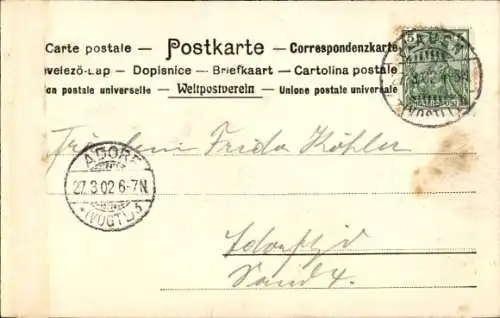 Carte postale — Postkarte — Correspondenzkarte
velező-Lap — Dopisnice — Briefkaart — Cartolina postale
on postale universelle — Weltpostverein — Unione postale universale
PLAUEN
(VOGTL.)
Fräulein Frida Köhler
ADORF
27.3.02 6-7N.
(VOGTL.)
Adorf i/V